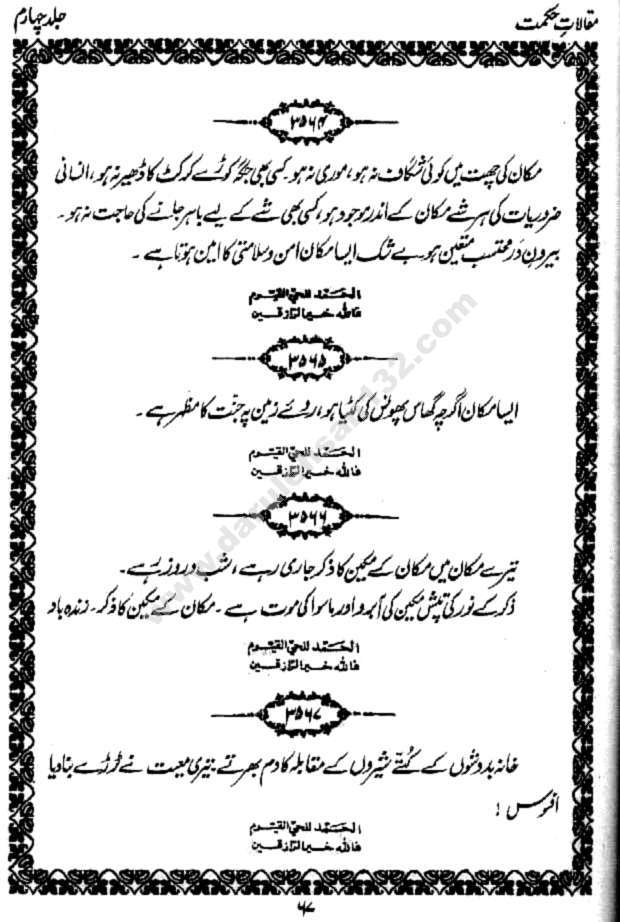 مقالاتِ حکمت
جلد چہارم
۳۵۶۴
مکان کی چھت میں کوئی شگاف نہ ہو، موری نہ ہو۔ کسی بھی جگہ کوڑے کرکٹ کا ڈھیر نہ ہو، انسانی
ضروریات کی ہر شے مکان کے اندر موجود ہو، کسی بھی شے کے لیے باہر جانے کی حاجت نہ ہو۔
بیرون در محتسب متعین ہو۔ بے شک ایسا مکان امن و سلامتی کا امین ہوتا ہے۔
الحمد للحی القیوم
فاللہ خیر الرازقین
۳۵۶۵
ایسا مکان اگرچہ گھاس پھونس کی کٹیا ہو، روئے زمین پہ جنت کا مظہر ہے۔
الحمد للحی القیوم
فاللہ خیر الرازقین
۳۵۶۶
تیرے مکان میں مکان کے مکین کا ذکر جاری رہے، شب و روز رہے۔
ذکر کے نور کی تپش مکین کی آبرو اور ماسوا کی موت ہے۔ مکان کے مکین کا ذکر۔ زندہ باد
الحمد للحی القیوم
فاللہ خیر الرازقین
۳۵۶۷
خانہ بدوشوں کے کُتے شیروں کے مقابلہ کا دم بھرتے۔ تیری معیت نے لرڑے بنا دیا
افسوس!
الحمد للحی القیوم
فاللہ خیر الرازقین
۶۷
www.darulehsan132.com